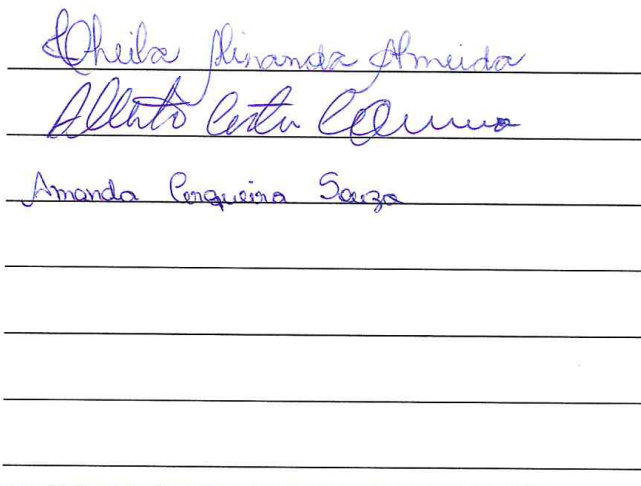 Sheila Miranda Almeida
Alberto Costa
Amanda Cerqueira Souza